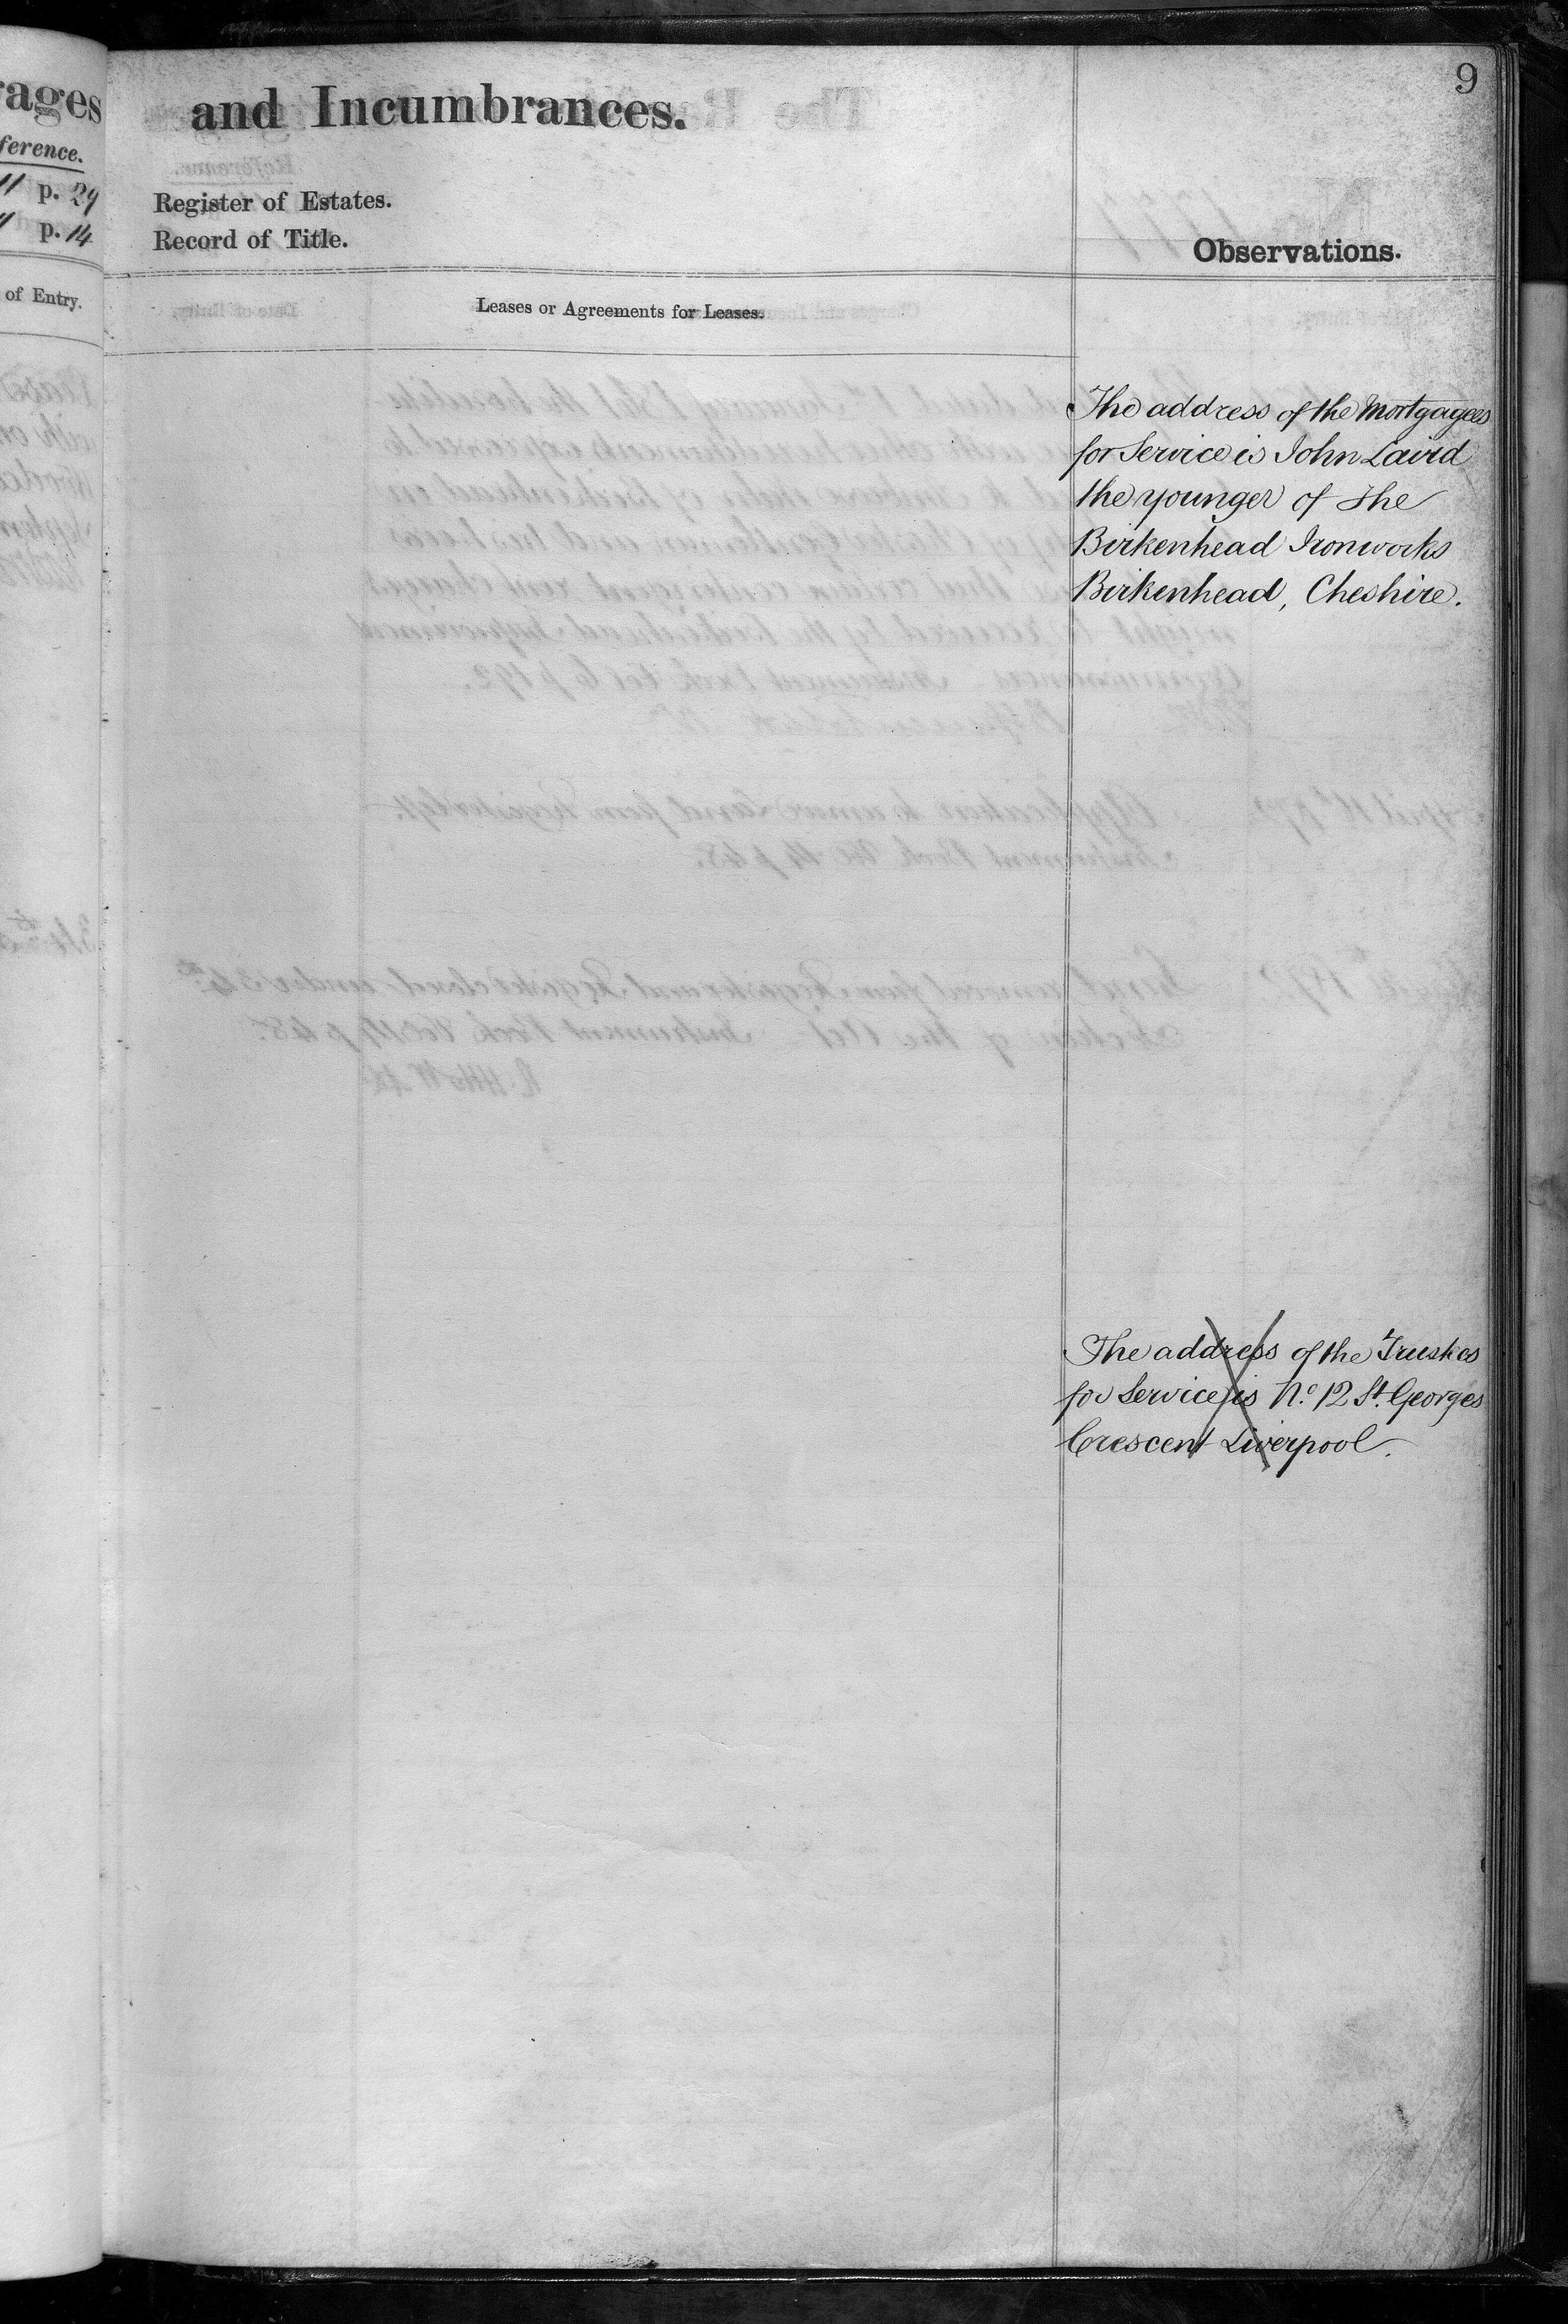 rages
ference.
11 p. 29
p. 14
of Entry.
9
and Incumbrances.
Register of Estates.
Record of Title.
Observations.
Leases or Agreements for Leases.
The address of the Mortgagees
for Service is John Laird
the younger of The
Birkenhead Ironworks
Birkenhead, Cheshire.
The address of the Trustees
for Service is No. 12 St. Georges
Crescent Liverpool.